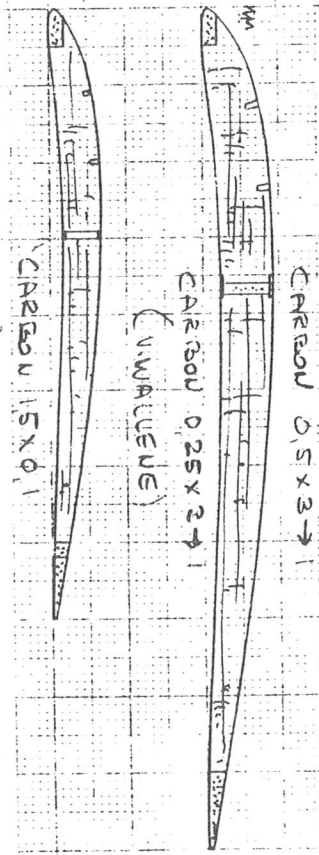 CARBON 0,5x3→1
CARBON 0,25x2→1
(V.WALLENE)
CARBON 1,5x0,1